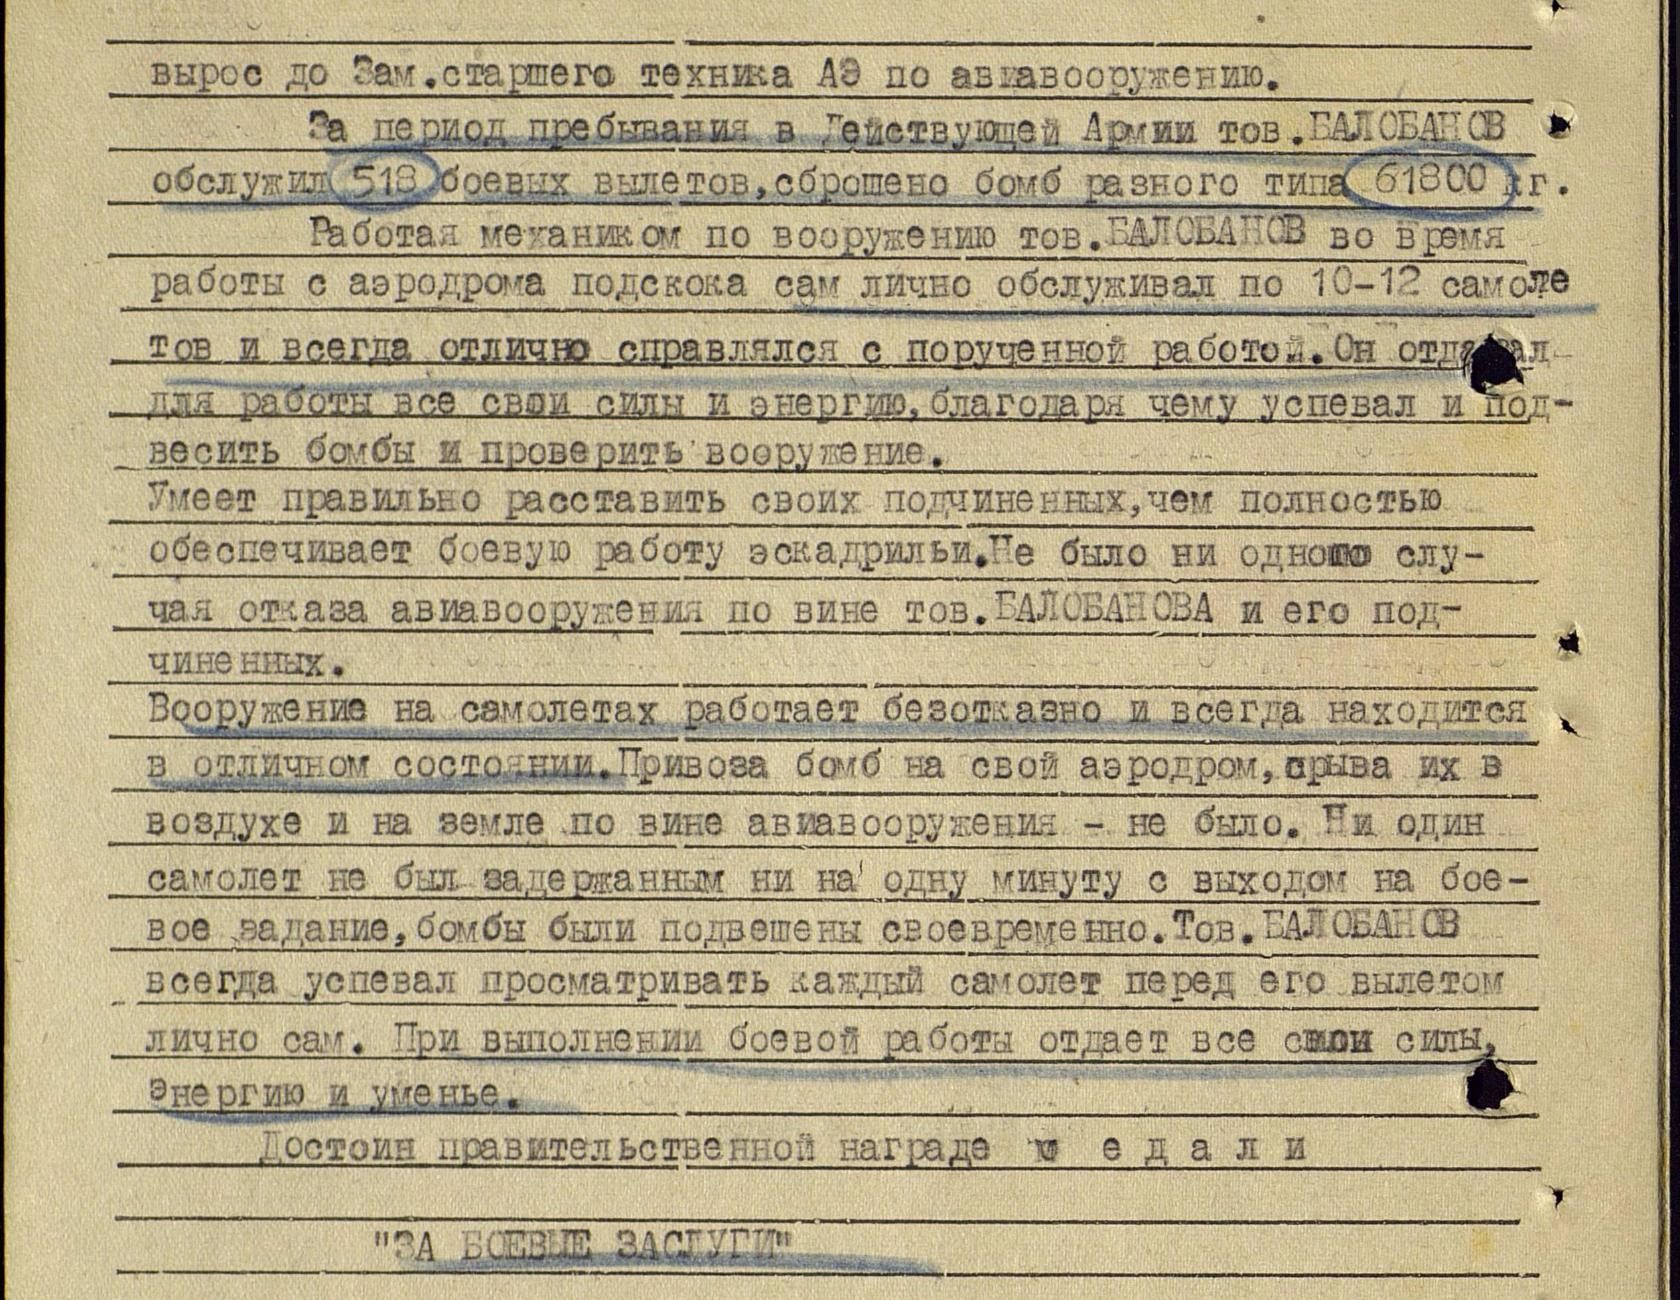 вырос до Зам.старшего техника АЭ по авиавооружению.
За период пребывания в Действующей Армии тов.БАЛОБАНОВ
обслужил 518 боевых вылетов,сброшено бомб разного типа 61800 кг.
Работая механиком по вооружению тов.БАЛОБАНОВ во время
работы с аэродрома подскока сам лично обслуживал по 10-12 самоле
тов и всегда отлично справлялся с порученной работой.Он отдавал
для работы все свои силы и энергию,благодаря чему успевал и под-
весить бомбы и проверить вооружение.
Умеет правильно расставить своих подчиненных,чем полностью
обеспечивает боевую работу эскадрильи.Не было ни одного слу-
чая отказа авиавооружения по вине тов.БАЛОБАНОВА и его под-
чиненных.
Вооружение на самолетах работает безотказно и всегда находится
в отличном состоянии.Привоза бомб на свой аэродром,срыва их в
воздухе и на земле по вине авиавооружения - не было. Ни один
самолет не был задержанным ни на одну минуту с выходом на бое-
вое задание,бомбы были подвешены своевременно.Тов.БАЛОБАНОВ
всегда успевал просматривать каждый самолет перед его вылетом
лично сам. При выполнении боевой работы отдает все свои силы,
энергию и уменье.
Достоин правительственной награде м е д а л и
"ЗА БОЕВЫЕ ЗАСЛУГИ"